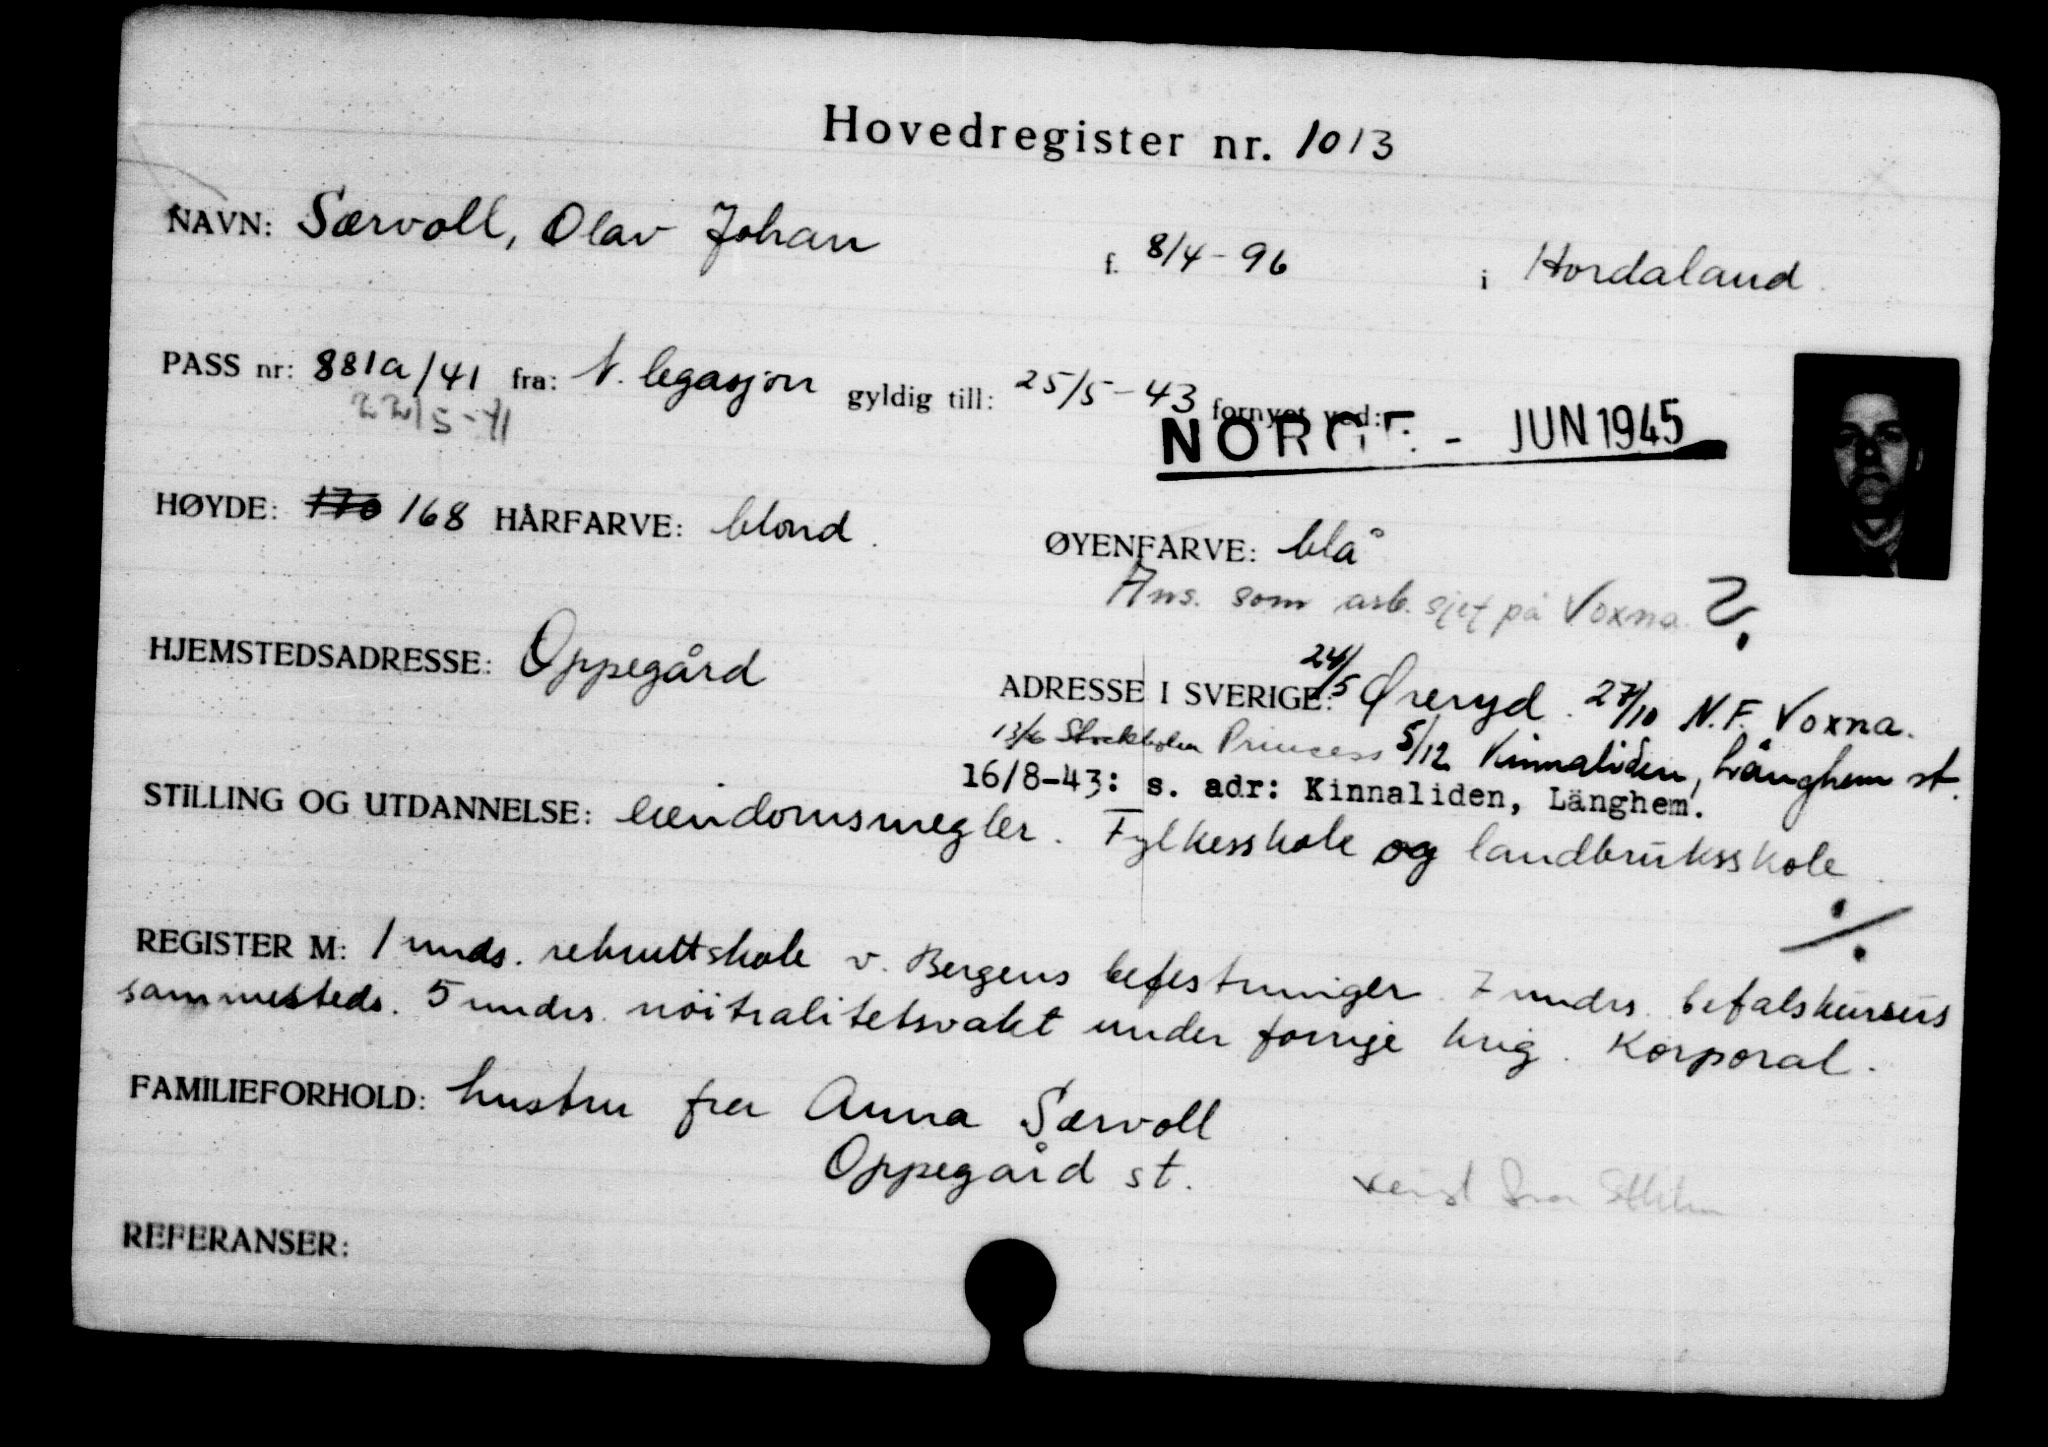 Hovedregister nr. 1013
NAVN: Særvoll, Olav Johan f. 8/4-96 i Hordaland.
PASS nr: 881a/41 fra: N. legasjon gyldig till: 25/5-43 fornyet ved:
22/5-41
NORGE - JUN 1945
HØYDE: 170 168 HÅRFARVE: blond. ØYENFARVE: blå
Ans. som arb. sjef på Voxna ?
HJEMSTEDSADRESSE: Oppegård
ADRESSE I SVERIGE: 24/5 Øreryd. 27/10 N.F. Voxna.
13/6 Stockholm Princess 5/12 Kinnaliden, Länghem st.
16/8-43: s. adr: Kinnaliden, Länghem.
STILLING OG UTDANNELSE: eiendomsmegler. Fylkesskole og landbruksskole.
REGISTER M: 1 mnds. rekruttskole v. Bergens befestninger. 7 mndrs. befalskursus
sammesteds. 5 mndrs. nöitralitetsvakt under forrige krig. Korporal.
FAMILIEFORHOLD: hustru fru Anna Særvoll
Oppegård st.
REFERANSER: